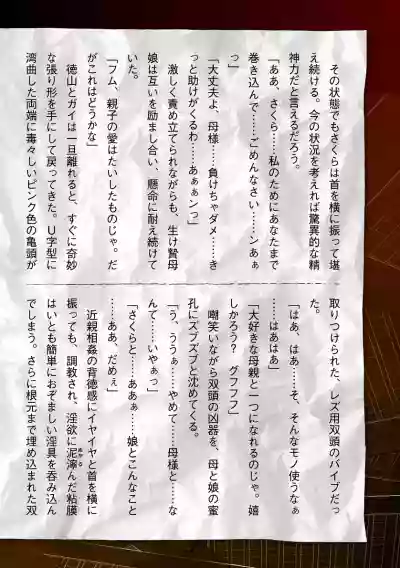 その状態でもさくらは首を横に振って堪
え続ける。今の状況を考えれば驚異的な精
神力だと言えるだろう。
「ああ、さくら……私のためにあなたまで
巻き込んで……ごめんなさい……ンあぁ
っ」
「大丈夫よ、母様……負けちゃダメ……き
っと助けがくるわ……あぁぁンっ」
激しく責め立てられながらも、生け贄母
娘は互いを励まし合い、懸命に耐え続けて
いた。
「フム、親子の愛はたいしたものじゃ。だ
がこれはどうかな」
徳山とガイは一旦離れると、すぐに奇妙
な張り形を手にして戻ってきた。U字型に
湾曲した両端に毒々しいピンク色の亀頭が
取りつけられた、レズ用双頭のバイブだっ
た。
「はあ、はあ……そ、そんなモノ使うなぁ
……はあはあ」
「大好きな母親と一つになれるのじゃ。嬉
しかろう? グフフフ」
嘲笑いながら双頭の凶器を、母と娘の蜜
孔にズブズブと沈めてくる。
「う、ううぁ……やめて……母様と……な
んて……いやぁっ」
「さくらと……ああぁ……娘とこんなこと
……ああ、だめぇ」
近親相姦の背徳感にイヤイヤと首を横に
振っても、調教され、淫欲に泥濘んだ粘膜
はいとも簡単におぞましい淫具を呑み込ん
でしまう。さらに根元まで埋め込まれた双